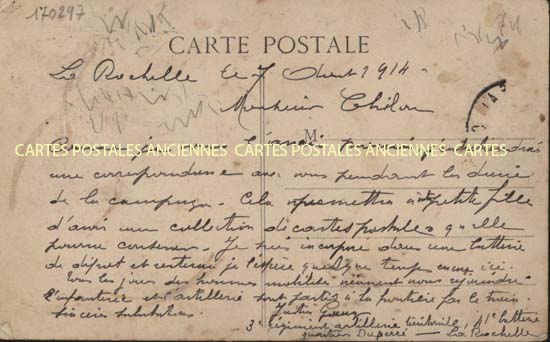 170297
CARTE POSTALE
La Rochelle le 7 Août 1914 -
Monsieur Chilou
M
CARTES POSTALES ANCIENNES CARTES POSTALES ANCIENNES CARTES
une correspondance avec vous pendant la durée
de la campagne. Cela permettra à petite fille
d'avoir une collection de cartes postales qu'elle
pourra conserver. Je suis incorporé dans une batterie
de dépôt et resterai je l'espère quelque temps encore ici.
Tous les jours des hommes mobilisés viennent nous rejoindre
L'infanterie et l'artillerie sont partis à la frontière par le train.
Sincères salutations.
3e régiment artillerie territoriale, 11e batterie
quartier Duperré — La Rochelle